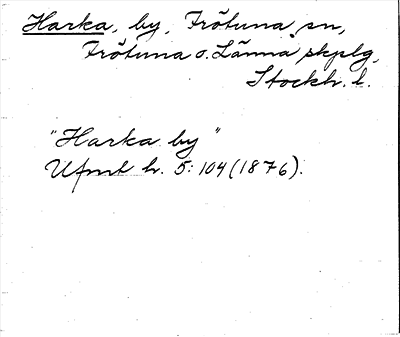 Harka, by, Frötuna sn,
Frötuna o. Länna skplg,
Stockh. l.
"Harka by"
Ufmt h. 5: 104 (1876).